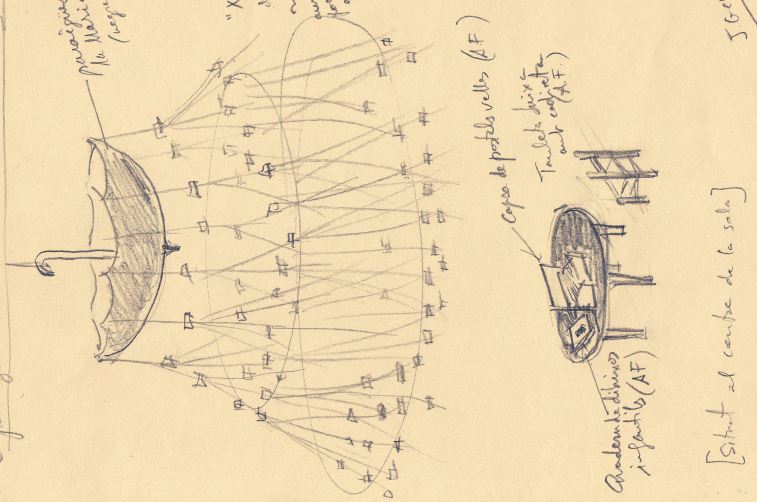 paraigües
la Maria
(negre
"X
capsa de postals velles (AF)
Tauleta baixa
amb cadireta
(A.F.)
Quadern de dibuixos
infantils (AF)
[Situat al centre de la sala]